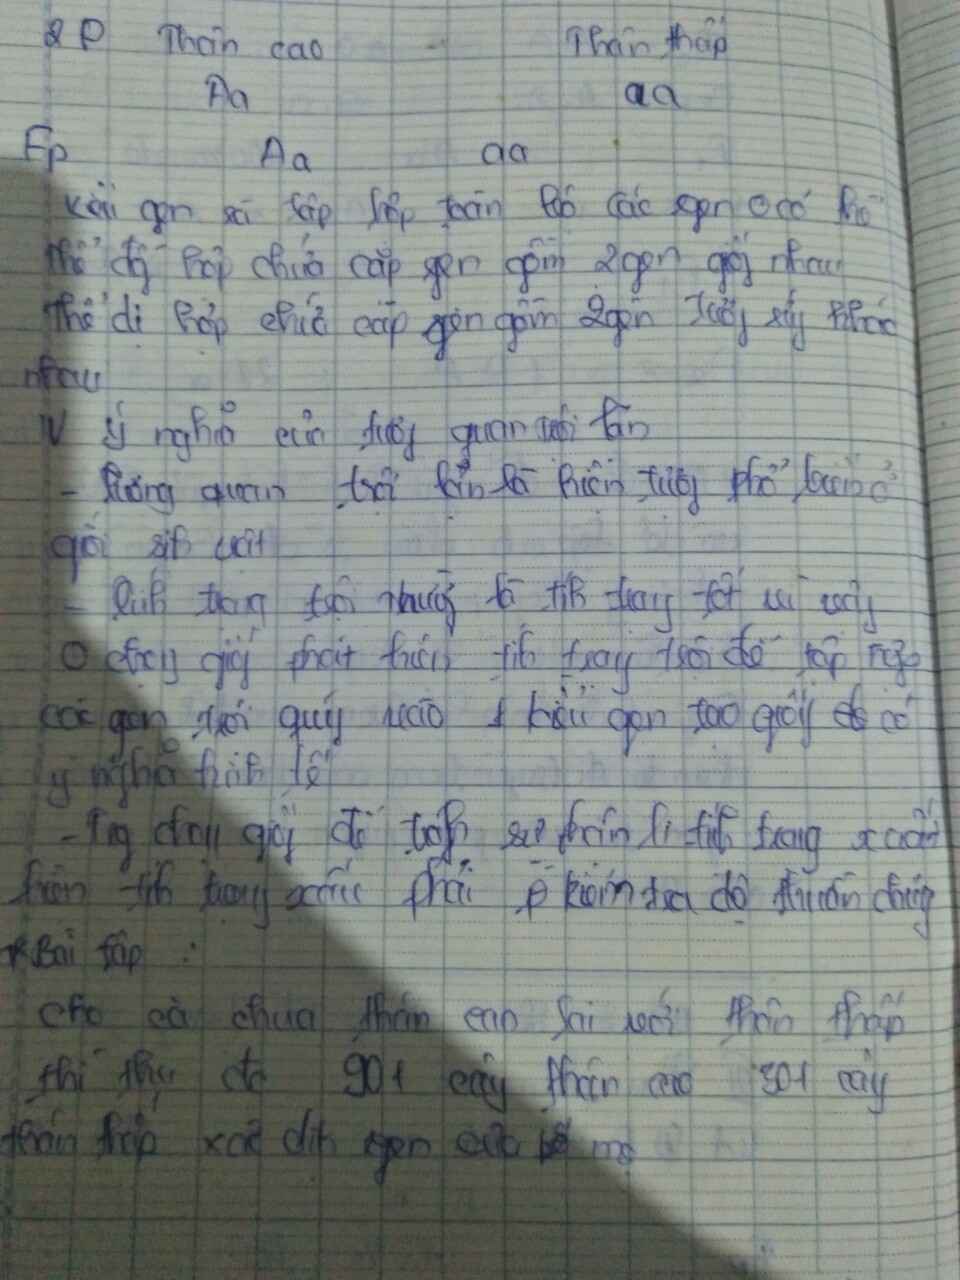 P Thân cao Thân thấp
Aa aa
Fp Aa aa
Kiểu gen là tập hợp toàn bộ các gen có
Thể đồng hợp chứa cặp gen gồm 2 gen giống nhau
Thể dị hợp chứa cặp gen gồm 2 gen khác
nhau
IV Ý nghĩa của tương quan trội lặn
- Tương quan trội lặn là hiện tượng phổ biến ở
giới sinh vật
- tính trạng trội thường là tính trạng tốt vì vậy
O chọn giống phát hiện tính trạng trội để tập
các gen trội quý vào 1 kiểu gen tạo giống để có
ý nghĩa kinh tế
- Trg chọn giống để tránh sự phân li tính trạng xuất
hiện tính trạng xấu phải kiểm tra độ thuần chủng
* Bài tập :
cho cà chua thân cao lai với thân thấp
thì thu đc 901 cây thân cao 301 cây
thân thấp xác định gen của bố mẹ